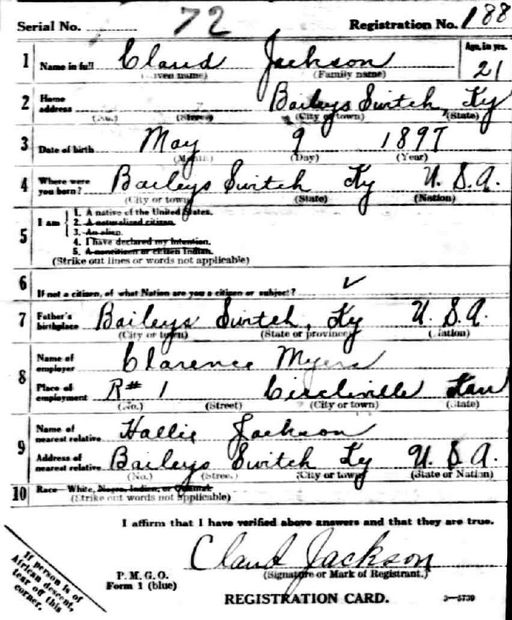 Serial No. 72 Registration No. 188
1 Name in full Claud Jackson Age, in yrs. 21
(Given name) (Family name)
2 Home address Baileys Switch Ky
(No.) (Street) (City or town) (State)
3 Date of birth May 9 1897
(Month) (Day) (Year)
4 Where were you born? Baileys Switch Ky U. S. A.
(City or town) (State) (Nation)
5 I am
1. A native of the United States.
2. A naturalized citizen.
3. An alien.
4. I have declared my intention.
5. A noncitizen or citizen Indian.
(Strike out lines or words not applicable)
6 If not a citizen, of what Nation are you a citizen or subject? ✓
7 Father's birthplace Baileys Switch, Ky U. S. A.
(City or town) (State or province) (Nation)
8 Name of employer Clarence Myers
Place of employment R# 1 Circleville Kan
(No.) (Street) (City or town) (State)
9 Name of nearest relative Hallie Jackson
Address of nearest relative Baileys Switch Ky U. S. A.
(No.) (Street) (City or town) (State or Nation)
10 Race—White, Negro, Indian, or Oriental
(Strike out words not applicable)
I affirm that I have verified above answers and that they are true.
Claud Jackson
P. M. G. O. (Signature or Mark of Registrant.)
Form 1 (blue)
REGISTRATION CARD. 3—5739
If person is of
African descent,
tear off this
corner.